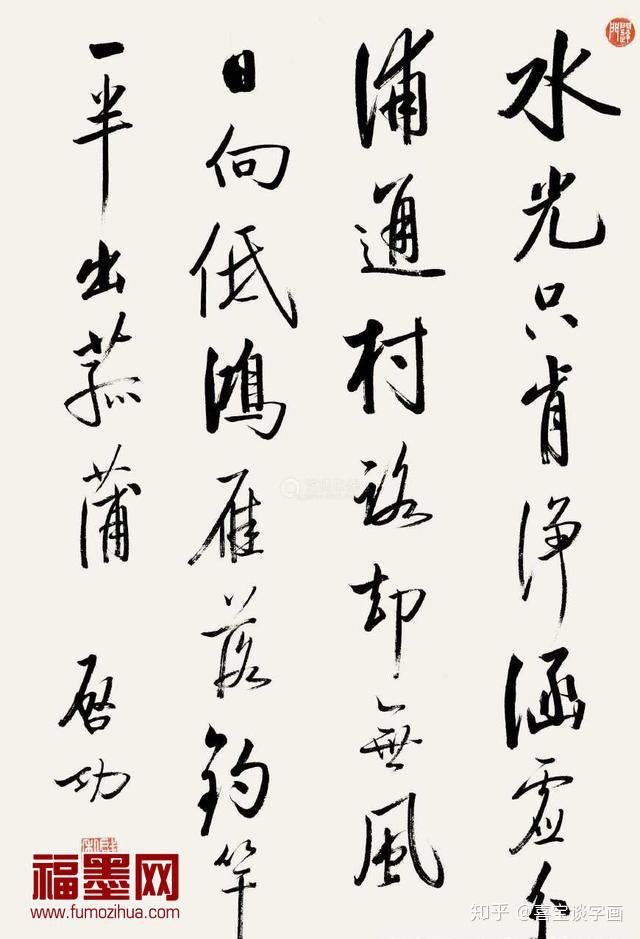 水光只肯净涵虚
浦通村路却無風
日向低鴻雁落釣竿
一半出菰蒲
啓功
福墨网
www.fumozihua.com
知乎 @喜宝谈字画